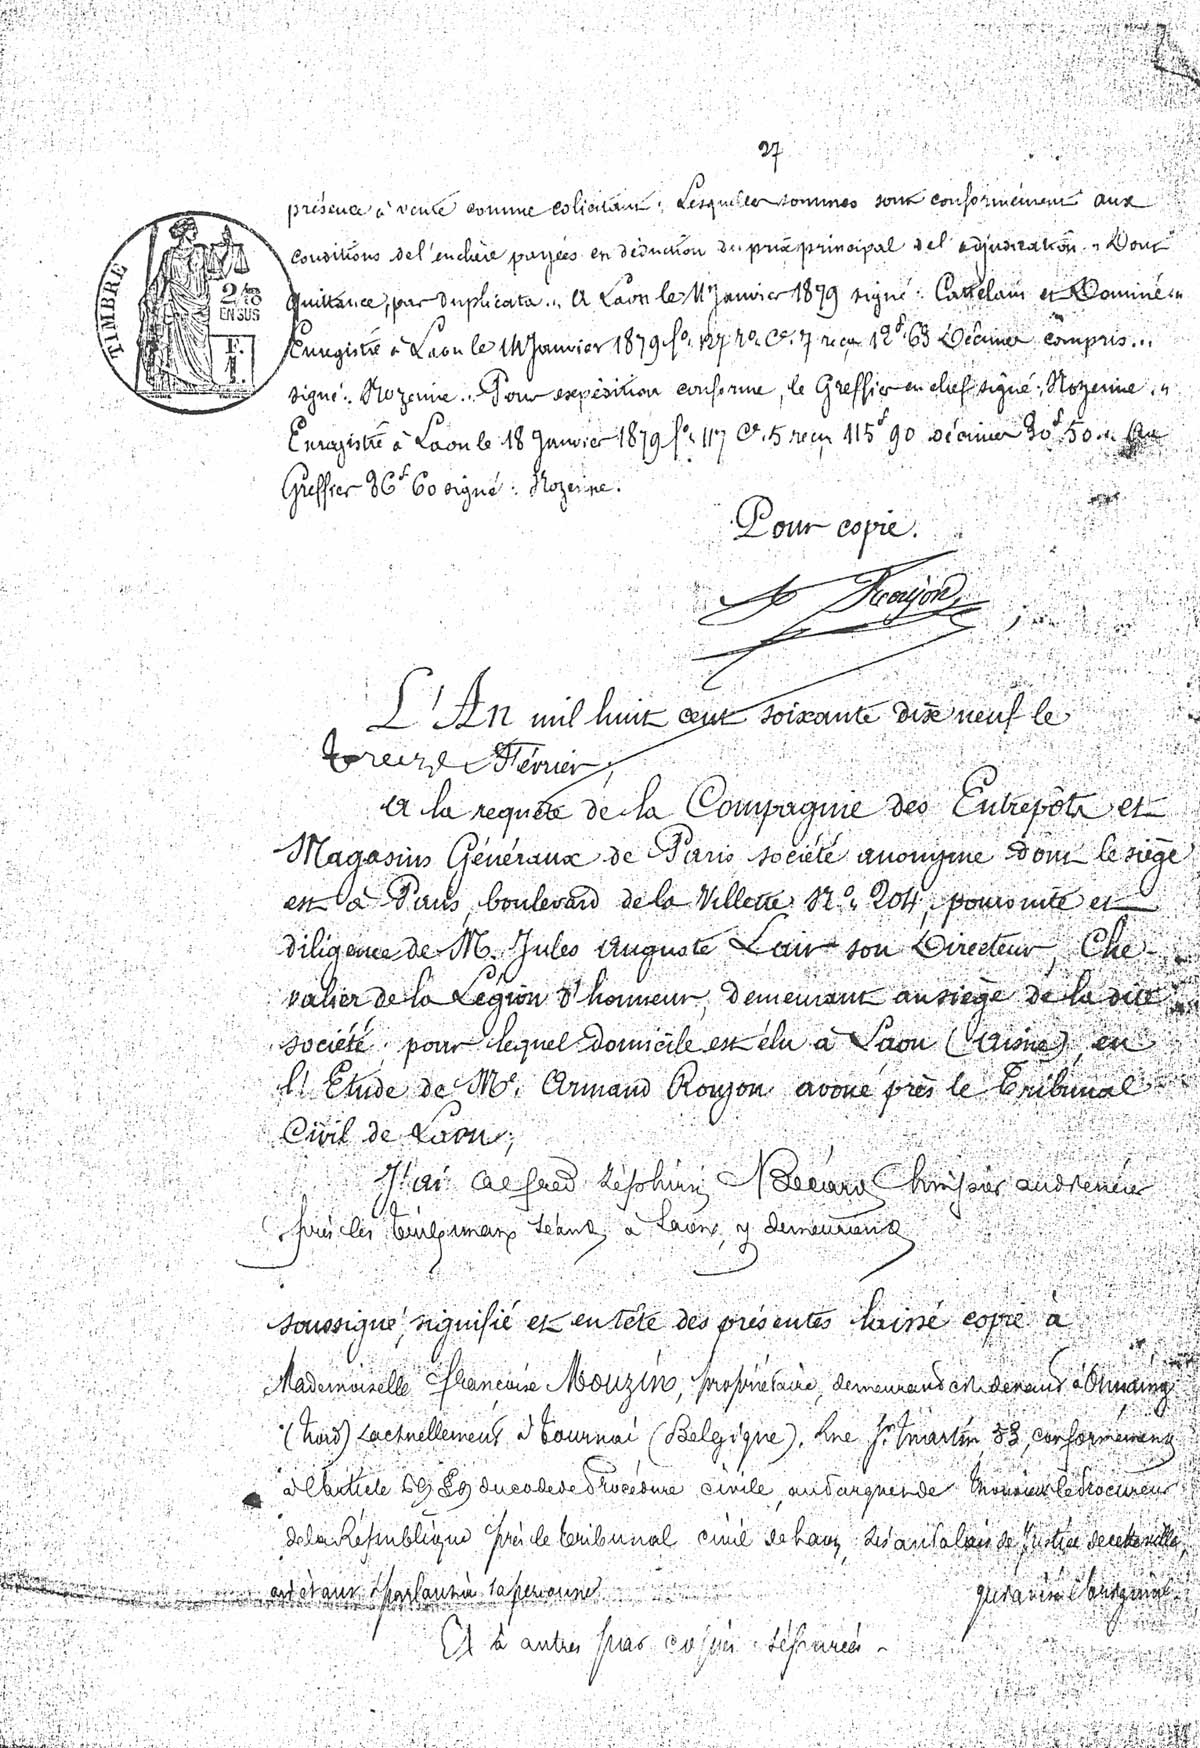 27
présence à vente comme colicitant. Lesquelles sommes sont conformément aux
conditions de l'enchère payées en déduction du prix principal de l'adjudication. Dont
quittance, par duplicata... A Laon le 11 Janvier 1879 signé: Cattelain et Dominé.
Enregistré à Laon le 14 Janvier 1879 fo. 127 ro. Ce. 7 reçu 12f 63 Décimes compris...
signé: Nozerine.. Pour expédition conforme, le Greffier en chef signé: Nozerine.
Enregistré à Laon le 18 Janvier 1879 fo. 117 Ce. 5 reçu 115f 90 Décimes 30f 50. Au
Greffier 36f 60 signé: Nozerine.
TIMBRE
2/10
EN SUS
F.
1.
Pour copie.
A Roujon
L'An mil huit cent soixante dix neuf le
treize Février,
A la requête de la Compagnie des Entrepôts et
Magasins Généraux de Paris société anonyme dont le siège
est à Paris, boulevard de la Villette No. 204, poursuite et
diligence de M. Jules Auguste Lair son Directeur, Che-
valier de la Légion d'honneur, demeurant au siège de la dite
société, pour lequel domicile est élu à Laon (Aisne), en
l'Etude de Me. Armand Roujon avoué près le Tribunal
Civil de Laon;
J'ai Alfred Zéphirin Bécard huissier audiencier
près les tribunaux séant à Laon, y demeurant
soussigné, signifié et en tête des présentes laissé copie à
Mademoiselle françoise Mouzin, propriétaire, demeurant ci-devant à Onnaing
(Nord) & actuellement à Tournai (Belgique), Rue St. Martin, 53, conformément
à l'article 69 § 9 du code de Procédure civile, au parquet de Monsieur le Procureur
de la République près le tribunal civil de Laon, séant au Palais de Justice de cette ville,
audit étant & parlant à sa personne qui a visé l'original.
Et à autres par copies séparées.